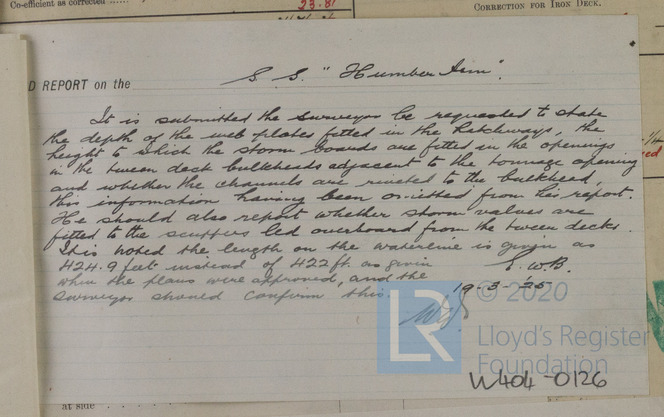 Co-efficient as corrected ...... 23.81
CORRECTION FOR IRON DECK.
D REPORT on the S.S. "Humber Arm".
It is submitted the Surveyor be requested to state
the depth of the web plates fitted in the hatchways, the
height to which the storm boards are fitted in the openings
in the tween deck bulkheads adjacent to the tonnage opening
and whether the channels are riveted to the bulkhead,
this information having been omitted from his report.
He should also report whether storm valves are
fitted to the scuppers led overboard from the tween decks.
It is noted the length on the waterline is given as
424.9 feet instead of 422 ft. as given
when the plans were approved, and the
Surveyor should confirm this.
E.W.B.
19-3-25
© 2020
LR
Lloyd's Register
Foundation
W404-0126
at side